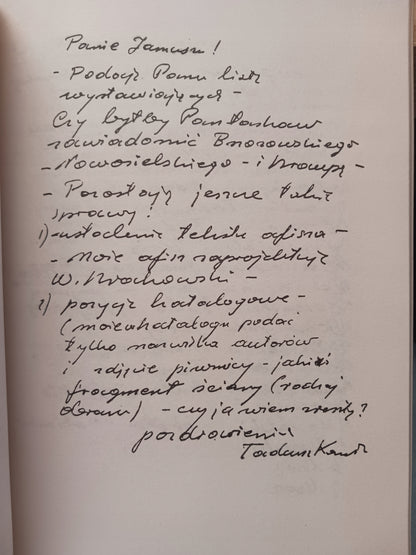 Panie Januszu!
- Podaję Panu listę
wystawiających -
Czy byłby Pan łaskaw
zawiadomić Brzozowskiego
- Nowosielskiego - i Kraupę -
- Pozostają jeszcze takie
sprawy:
1) - ustalenie tekstu afisza -
- Może afisz zaprojektuje
W. Krakowski -
2) pozycje katalogowe -
(może w katalogu podać
tylko nazwiska autorów
i zdjęcie piwnicy - jakiś
fragment ściany (rodzaj
) - czy ja wiem zresztą?
pozdrowienia
Tadeusz Kantor